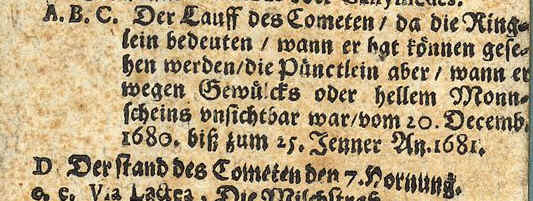 A. B. C. Der Lauff des Cometen / da die Ring-
lein bedeuten / wann er hat können gese-
hen werden/die Pünctlein aber / wann er
wegen Gewülcks oder hellem Monn-
scheins vnsichtbar war/vom 20. Decemb.
1680. biß zum 25. Jenner An. 1681.
D. Der stand des Cometen den 7. Hornung.
e. e. Via Lactea, Die Milchstraß